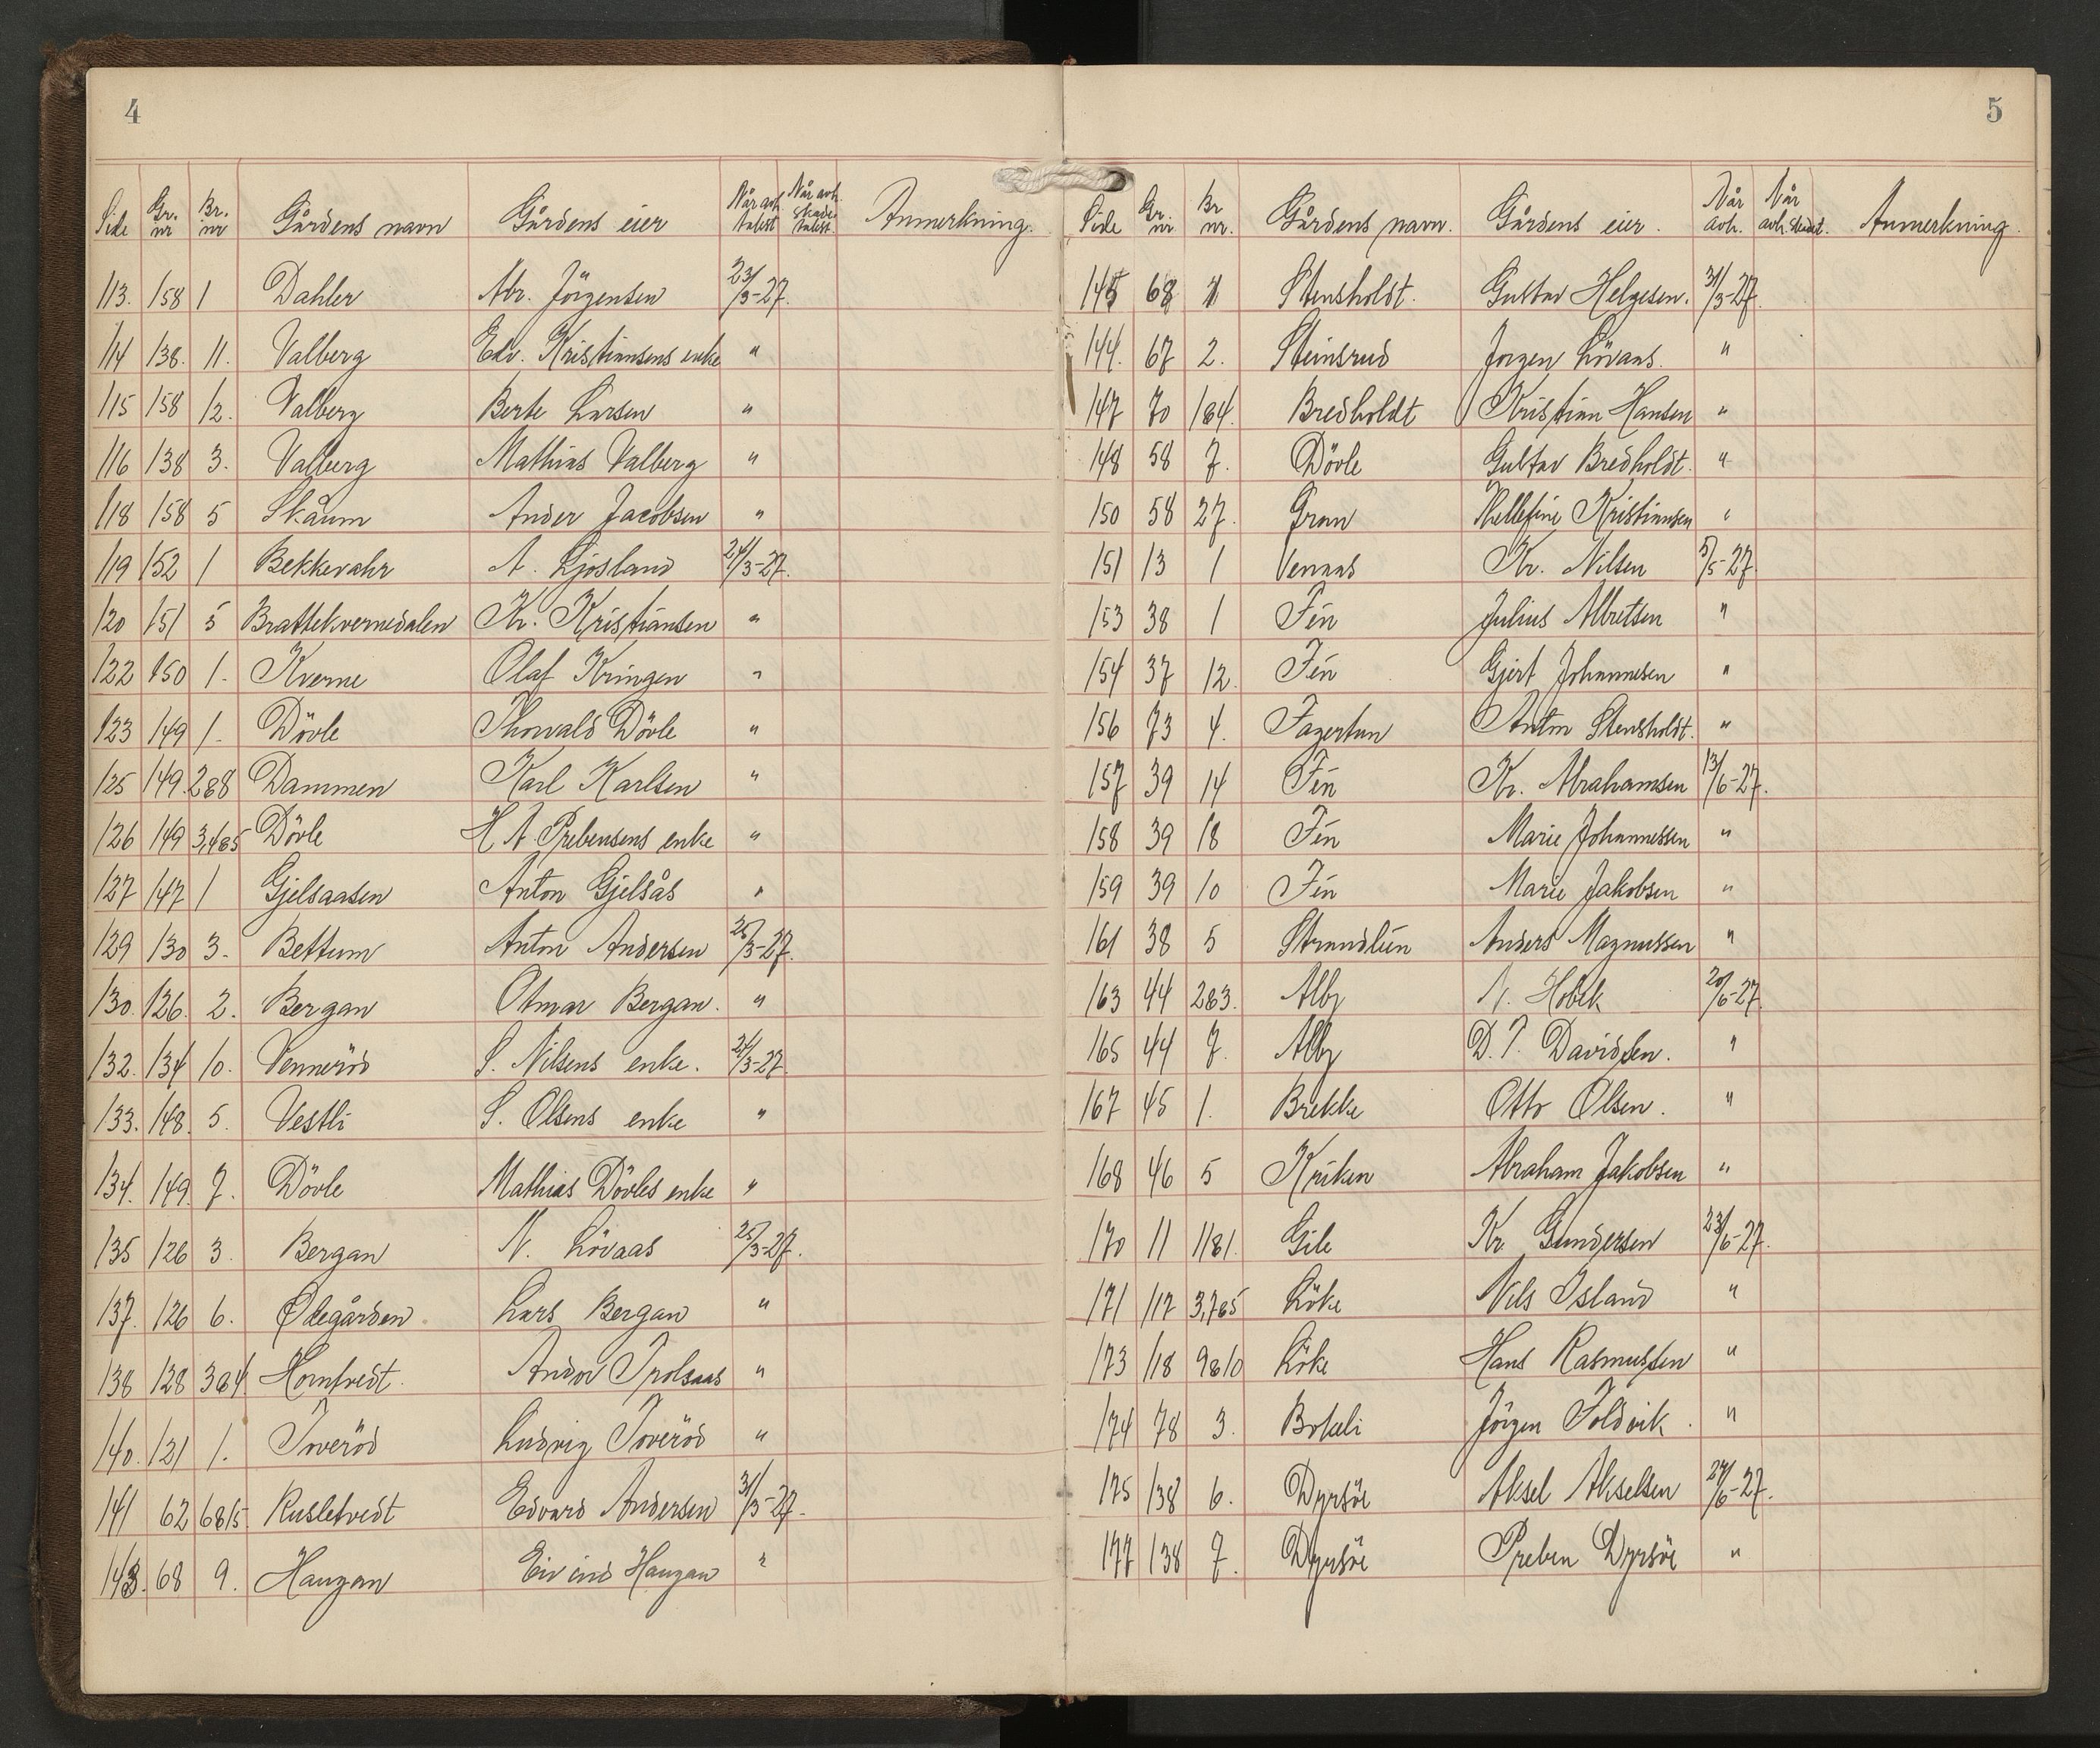 4
Side Gr. nr Br. nr Gårdens navn Gårdens eier Når avh. takst Når avh. skade takst. Anmerkning.
113. 158 1 Dahler Abr. Jörgensen 23/3-27.
114 138. 11. Valberg Edv. Kristiansens enke "
115 158 12. Valberg Berte Larsen "
116 138 3. Valberg Mathias Valberg "
118 158 5 Skåum Ander Jacobsen "
119 152 1 Bekkevahr A. Ljosland 24/3-27.
120 151 5 Brattekvernedalen Kr. Kristiansen "
122 150 1. Kverne Olaf Kringen "
123 149 1. Dövle Thorvald Dövle "
125 149. 2&8 Dammen Karl Karlsen "
126 149 3,4&5 Dövle H A Prebensens enke "
127 147 1 Gjelsaasen Anton Gjelsås "
129 130 3. Bettum Anton Andersen 25/3-27.
130. 126. 2. Bergan Otmar Bergan. "
132. 134 10. Venneröd S. Nilsens enke. 24/3-27.
133. 148. 5. Vestli S. Olsens enke "
134. 149. 7. Dövle Mathias Dövles enke "
135 126 3. Bergan N. Lövaas 25/3-27.
137. 126 6. Ødegården. Lars Bergan "
138 128 3&4 Homtvedt. Andor Trolsaas "
140. 121 1. Toveröd Ludvig Toveröd "
141 62 6&15. Rusletvedt Edvard Andersen 31/3-27.
143. 68 9. Haugan Eivind Haugan "
5
Side Gr. nr. Br nr. Gårdens navn. Gårdens eier. Når avh. Når avh. skadet. Anmerkning.
145 68 1 Stensholdt. Gustav Helgesen. 31/3-27.
144. 67 2. Steinsrud Jorgen Lövaas. "
147 70 1&4. Bredholdt Kristian Hansen "
148 58 7. Dövle Gustav Bredholdt. "
150 58 27. Gran Kristiansen "
151 13 1 Venaas Kr. Nilsen 5/5-27.
153 38 1 Fén Julius Albretsen "
154 37 12. Fén Gjert Johannesen "
156 73 4. Fagertun Anton Stensholdt. "
157 39 14 Fén Kr. Abrahamsen 13/6-27.
158 39 18 Fén Marie Johannessen "
159 39 10 Fén Marie Jakobsen "
161 38 5 Strandlún Anders Magnussen "
163 44 2&3. Alby N. Hobek 20/6-27.
165 44 7. Alby D. T. Davidsen. "
167 45 1. Brekke Otto Olsen. "
168 46 5 Kriken Abraham Jakobsen "
170 11 1181. Gile Kr Gundersen 23/6-27.
171 117 3,7&5 Löke Nils Island "
173 118 9&10 Löke Hans Rasmussen "
174 78 3. Brekali Jörgen Foldvik. "
175 138 6. Dyrsöe Aksel Akselsen 24/6-27.
177 138 7. Dyrsöe Preben Dyrsöe "